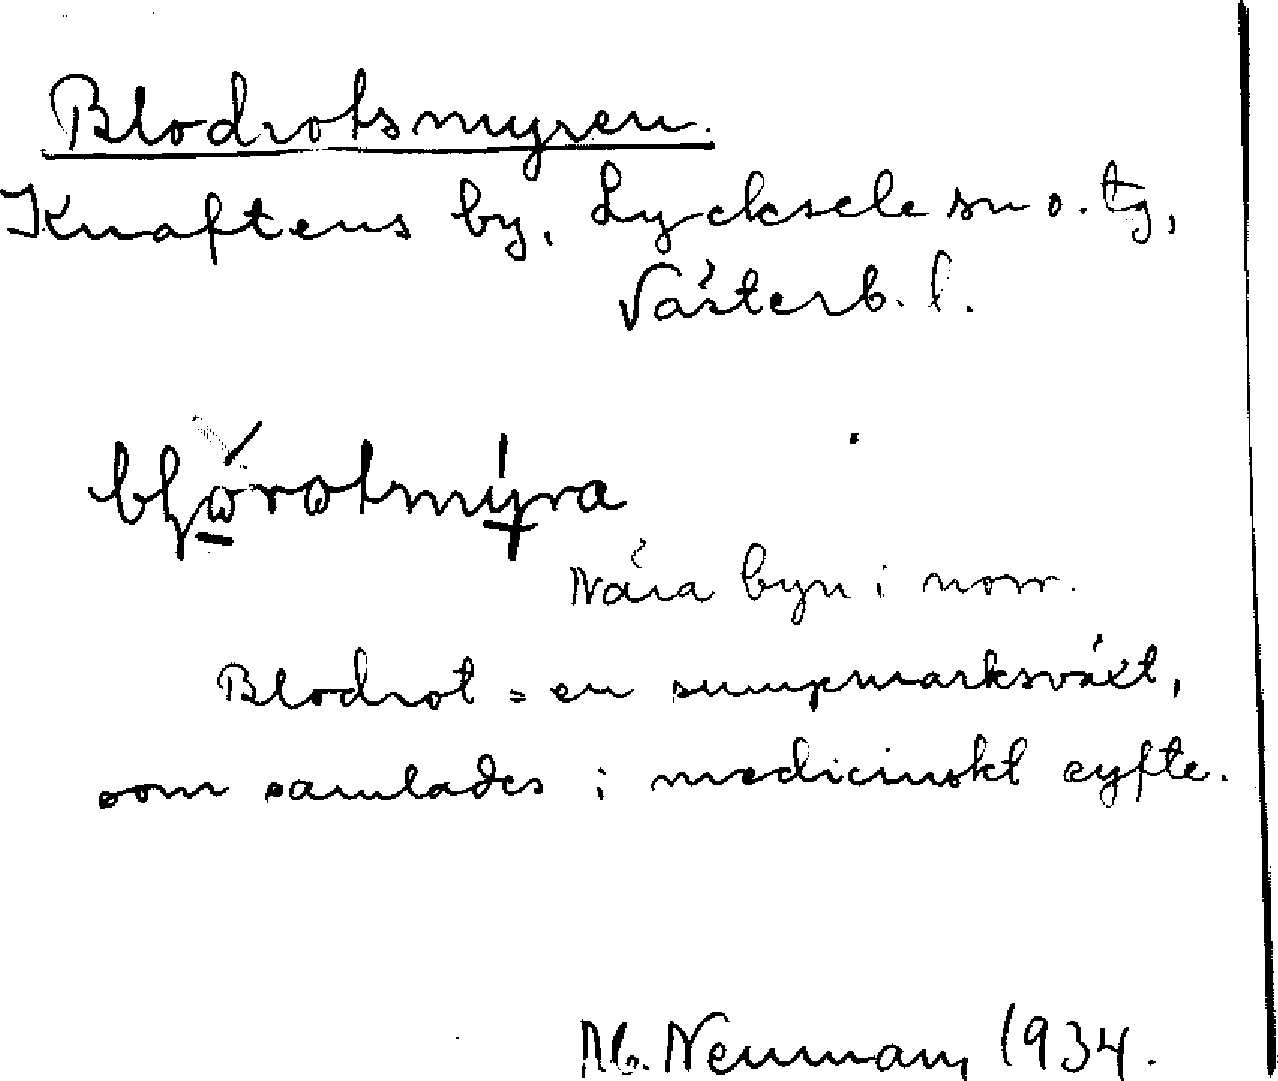 Blodrotsmyren.
Knaftens by, Lycksele sn o. tg,
Västerb. l.
Nära byn i norr.
Blodrot = en sumpmarksväxt,
som samlades i medicinskt syfte.
Neuman, 1934.